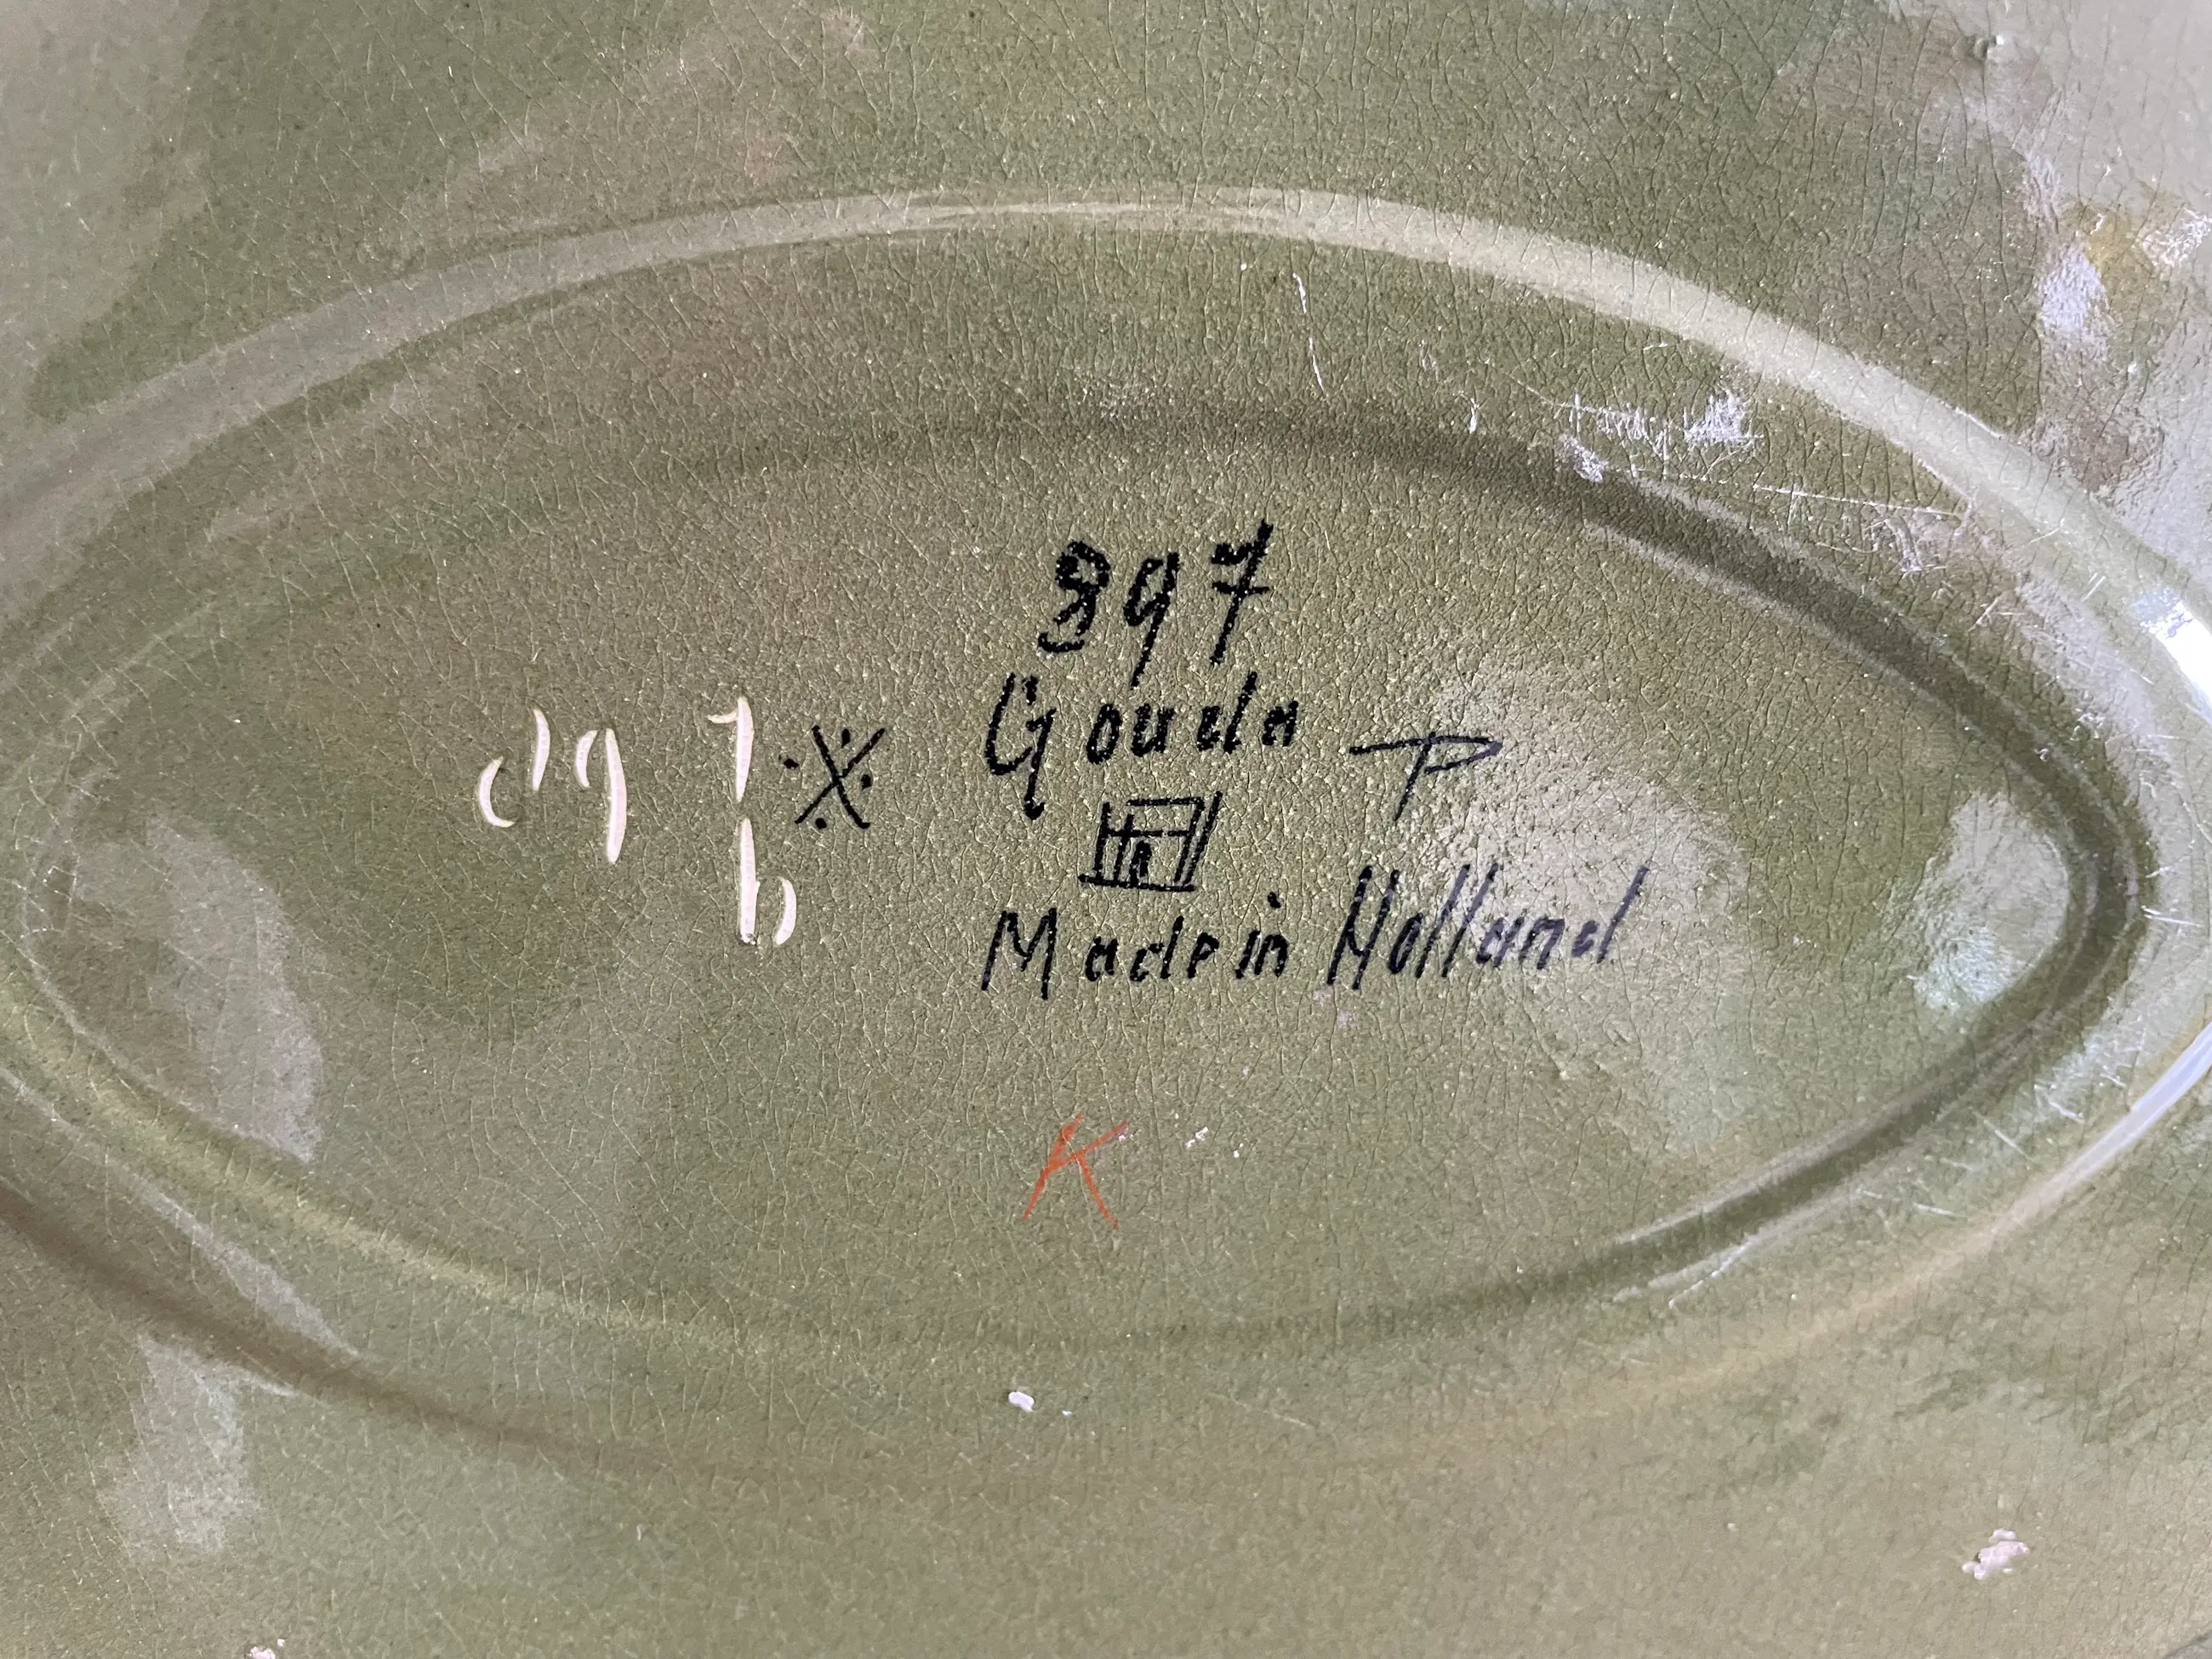 397
Gouda
Made in Holland
K